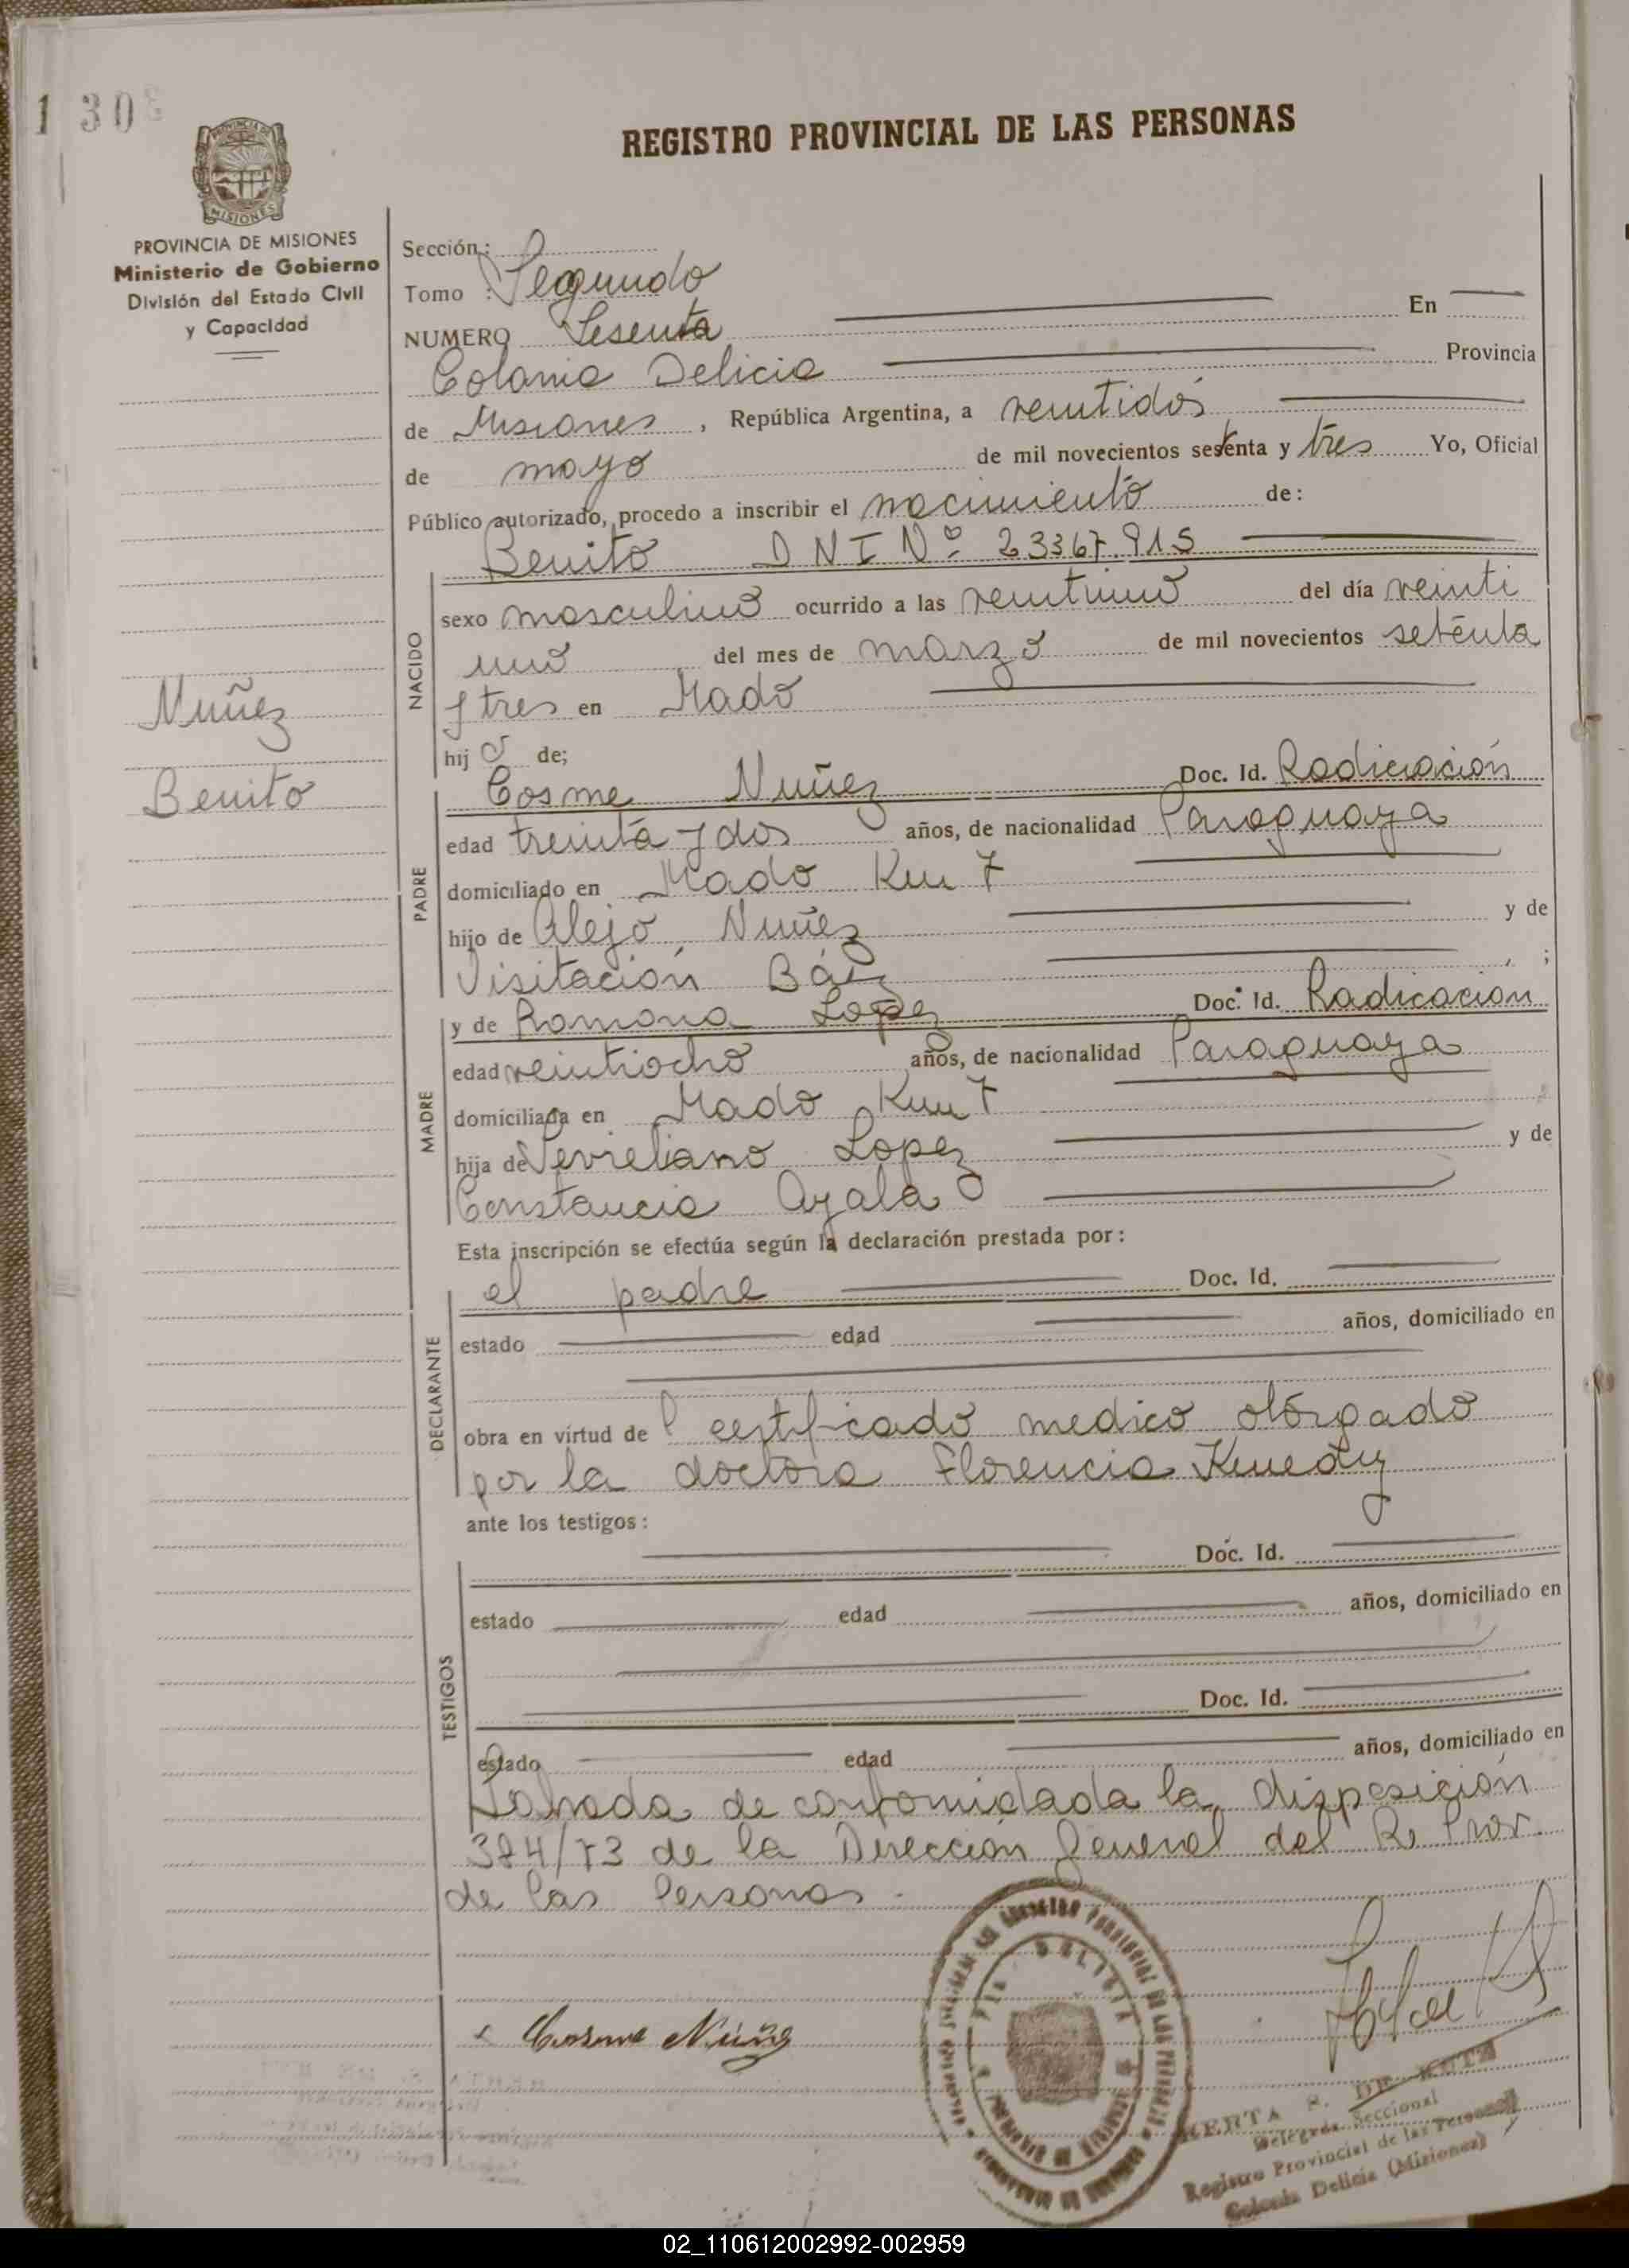 1 30
REGISTRO PROVINCIAL DE LAS PERSONAS
MISIONES
PROVINCIA DE MISIONES
Ministerio de Gobierno
División del Estado Civil
y Capacidad
Sección:
Tomo : Segundo
NUMERO Sesenta En
Colonia Delicia Provincia
de Misiones , República Argentina, a veintidós
de mayo de mil novecientos setenta y tres Yo, Oficial
Público autorizado, procedo a inscribir el nacimiento de:
Benito DNI Nº 23367.915
NACIDO
sexo masculino ocurrido a las veintiuno del día veinti
uno del mes de marzo de mil novecientos setenta
y tres en Mado
hijo de;
Nuñez
Benito
PADRE
Cosme Nuñez Doc. Id. Radicación
edad treinta y dos años, de nacionalidad Paraguaya
domiciliado en Mado Km 7
hijo de Alejo Nuñez y de
Visitación Báez ;
MADRE
y de Ramona Lopez Doc. Id. Radicación
edad veintiocho años, de nacionalidad Paraguaya
domiciliada en Mado Km 7
hija de Lopez y de
Constancia Ayala
Esta inscripción se efectúa según la declaración prestada por:
DECLARANTE
el padre Doc. Id.
estado edad años, domiciliado en
obra en virtud de certificado medico otorgado
por la doctora Florencia Kenedy
ante los testigos:
TESTIGOS
Doc. Id.
estado edad años, domiciliado en
Doc. Id.
estado edad años, domiciliado en
Labrada de conformidada la disposición
/73 de la Dirección General del R. Prov.
de las Personas.
Cosme Núñez
HERTA S. DE
Delegada Seccional
Registro Provincial de las Personas
Colonia Delicia (Misiones)
02_110612002992-002959